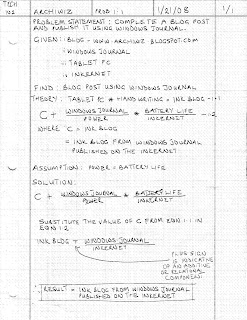 TECH 102 ARCHIWIZ PROB 1-1 1/21/08 1/1
PROBLEM STATEMENT: COMPLETE A BLOG POST
AND PUBLISH IT USING WINDOWS JOURNAL.
GIVEN: BLOG - WWW.ARCHIWIZ.BLOGSPOT.COM
: WINDOWS JOURNAL
: TABLET PC
: INKERNET
FIND: BLOG POST USING WINDOWS JOURNAL
THEORY: TABLET PC * HANDWRITING = INK BLOG - 1-1
C + WINDOWS JOURNAL / POWER * BATTERY LIFE / INKERNET - 1.2
WHERE C = INK BLOG
= INK BLOG FROM WINDOWS JOURNAL
PUBLISHED ON THE INKERNET
ASSUMPTION: POWER = BATTERY LIFE
SOLUTION:
C + WINDOWS JOURNAL / POWER * BATTERY LIFE / INKERNET
SUBSTITUTE THE VALUE OF C FROM EQN 1-1 IN
EQN 1.2
INK BLOG + WINDOWS JOURNAL / INKERNET
PLUS SIGN
IS INDICATIVE
OF AN ADDITIVE
OR RELATIONAL
COMPONENT
∴ RESULT = INK BLOG FROM WINDOWS JOURNAL
PUBLISHED ON THE INKERNET